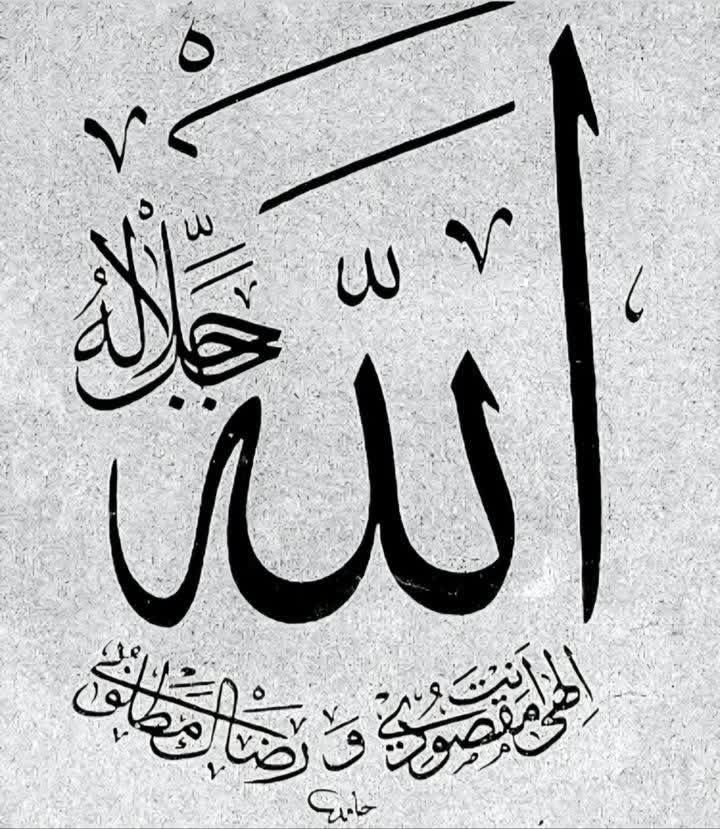 الله
جَلَّ جَلَالُهُ
إلهي أنت مقصودي و رضاك مطلوبي
حامد